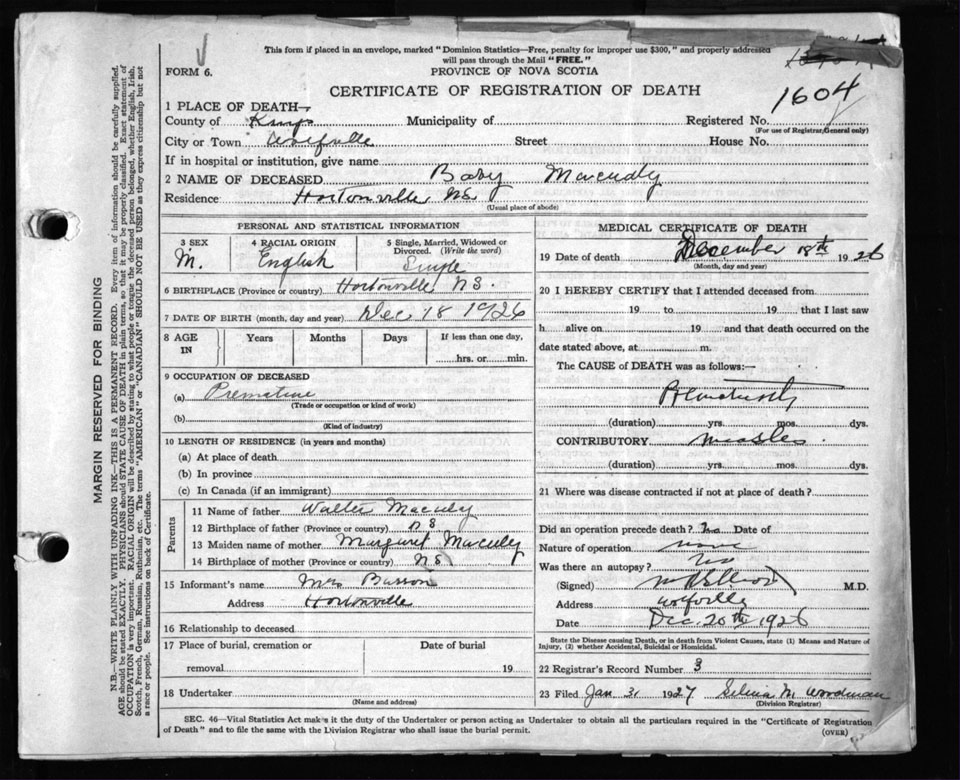 This form if placed in an envelope, marked "Dominion Statistics—Free, penalty for improper use $300," and properly addressed
will pass through the Mail "FREE."
FORM 6.
PROVINCE OF NOVA SCOTIA
CERTIFICATE OF REGISTRATION OF DEATH
1604
1 PLACE OF DEATH—
County of Kings Municipality of Registered No.
(For use of Registrar General only)
City or Town Wolfville Street House No.
If in hospital or institution, give name
2 NAME OF DECEASED Baby Macudy
Residence Hortonville NS
(Usual place of abode)
PERSONAL AND STATISTICAL INFORMATION
3 SEX 4 RACIAL ORIGIN 5 Single, Married, Widowed or
Divorced. (Write the word)
M. English Single
6 BIRTHPLACE (Province or country) Hortonville NS.
7 DATE OF BIRTH (month, day and year) Dec 18 1926
8 AGE Years Months Days If less than one day,
IN hrs. or min.
9 OCCUPATION OF DECEASED
(a) Premature
(Trade or occupation or kind of work)
(b)
(Kind of industry)
10 LENGTH OF RESIDENCE (in years and months)
(a) At place of death
(b) In province
(c) In Canada (if an immigrant)
Parents
11 Name of father Walter Macudy
12 Birthplace of father (Province or country) NS
13 Maiden name of mother Margaret Macudy
14 Birthplace of mother (Province or country) NS
15 Informant's name Mrs
Address Hortonville
16 Relationship to deceased
17 Place of burial, cremation or Date of burial
removal 19
18 Undertaker
(Name and address)
MEDICAL CERTIFICATE OF DEATH
19 Date of death December 18th 1926
(Month, day and year)
20 I HEREBY CERTIFY that I attended deceased from
19 to 19 that I last saw
h alive on 19 and that death occurred on the
date stated above, at m.
The CAUSE of DEATH was as follows:—
(duration) yrs. mos. dys.
CONTRIBUTORY measles.
(duration) yrs. mos. dys.
21 Where was disease contracted if not at place of death?
Did an operation precede death? no Date of
Nature of operation none
Was there an autopsy? no
(Signed) M.D.
Address Wolfville
Date Dec. 20th 1926
State the Disease causing Death, or in death from Violent Causes, state (1) Means and Nature of
Injury, (2) whether Accidental, Suicidal or Homicidal.
22 Registrar's Record Number 3
23 Filed Jan 31 1927 Selina M. Woodman
(Division Registrar)
SEC. 46—Vital Statistics Act makes it the duty of the Undertaker or person acting as Undertaker to obtain all the particulars required in the "Certificate of Registration
of Death" and to file the same with the Division Registrar who shall issue the burial permit.
(OVER)
MARGIN RESERVED FOR BINDING
N.B.—WRITE PLAINLY WITH UNFADING INK—THIS IS A PERMANENT RECORD. Every item of information should be carefully supplied.
AGE should be stated EXACTLY. PHYSICIANS should STATE CAUSE OF DEATH in plain terms, so that it may be properly classified. Exact statement of
OCCUPATION is very important. RACIAL ORIGIN will be described by stating to what people or tongue the deceased person belonged, whether English, Irish,
Scotch, French, German, Russian, Ruthenian, etc. The terms "AMERICAN" or "CANADIAN" SHOULD NOT BE USED as they express citizenship but not
a race or people. See instructions on back of Certificate.